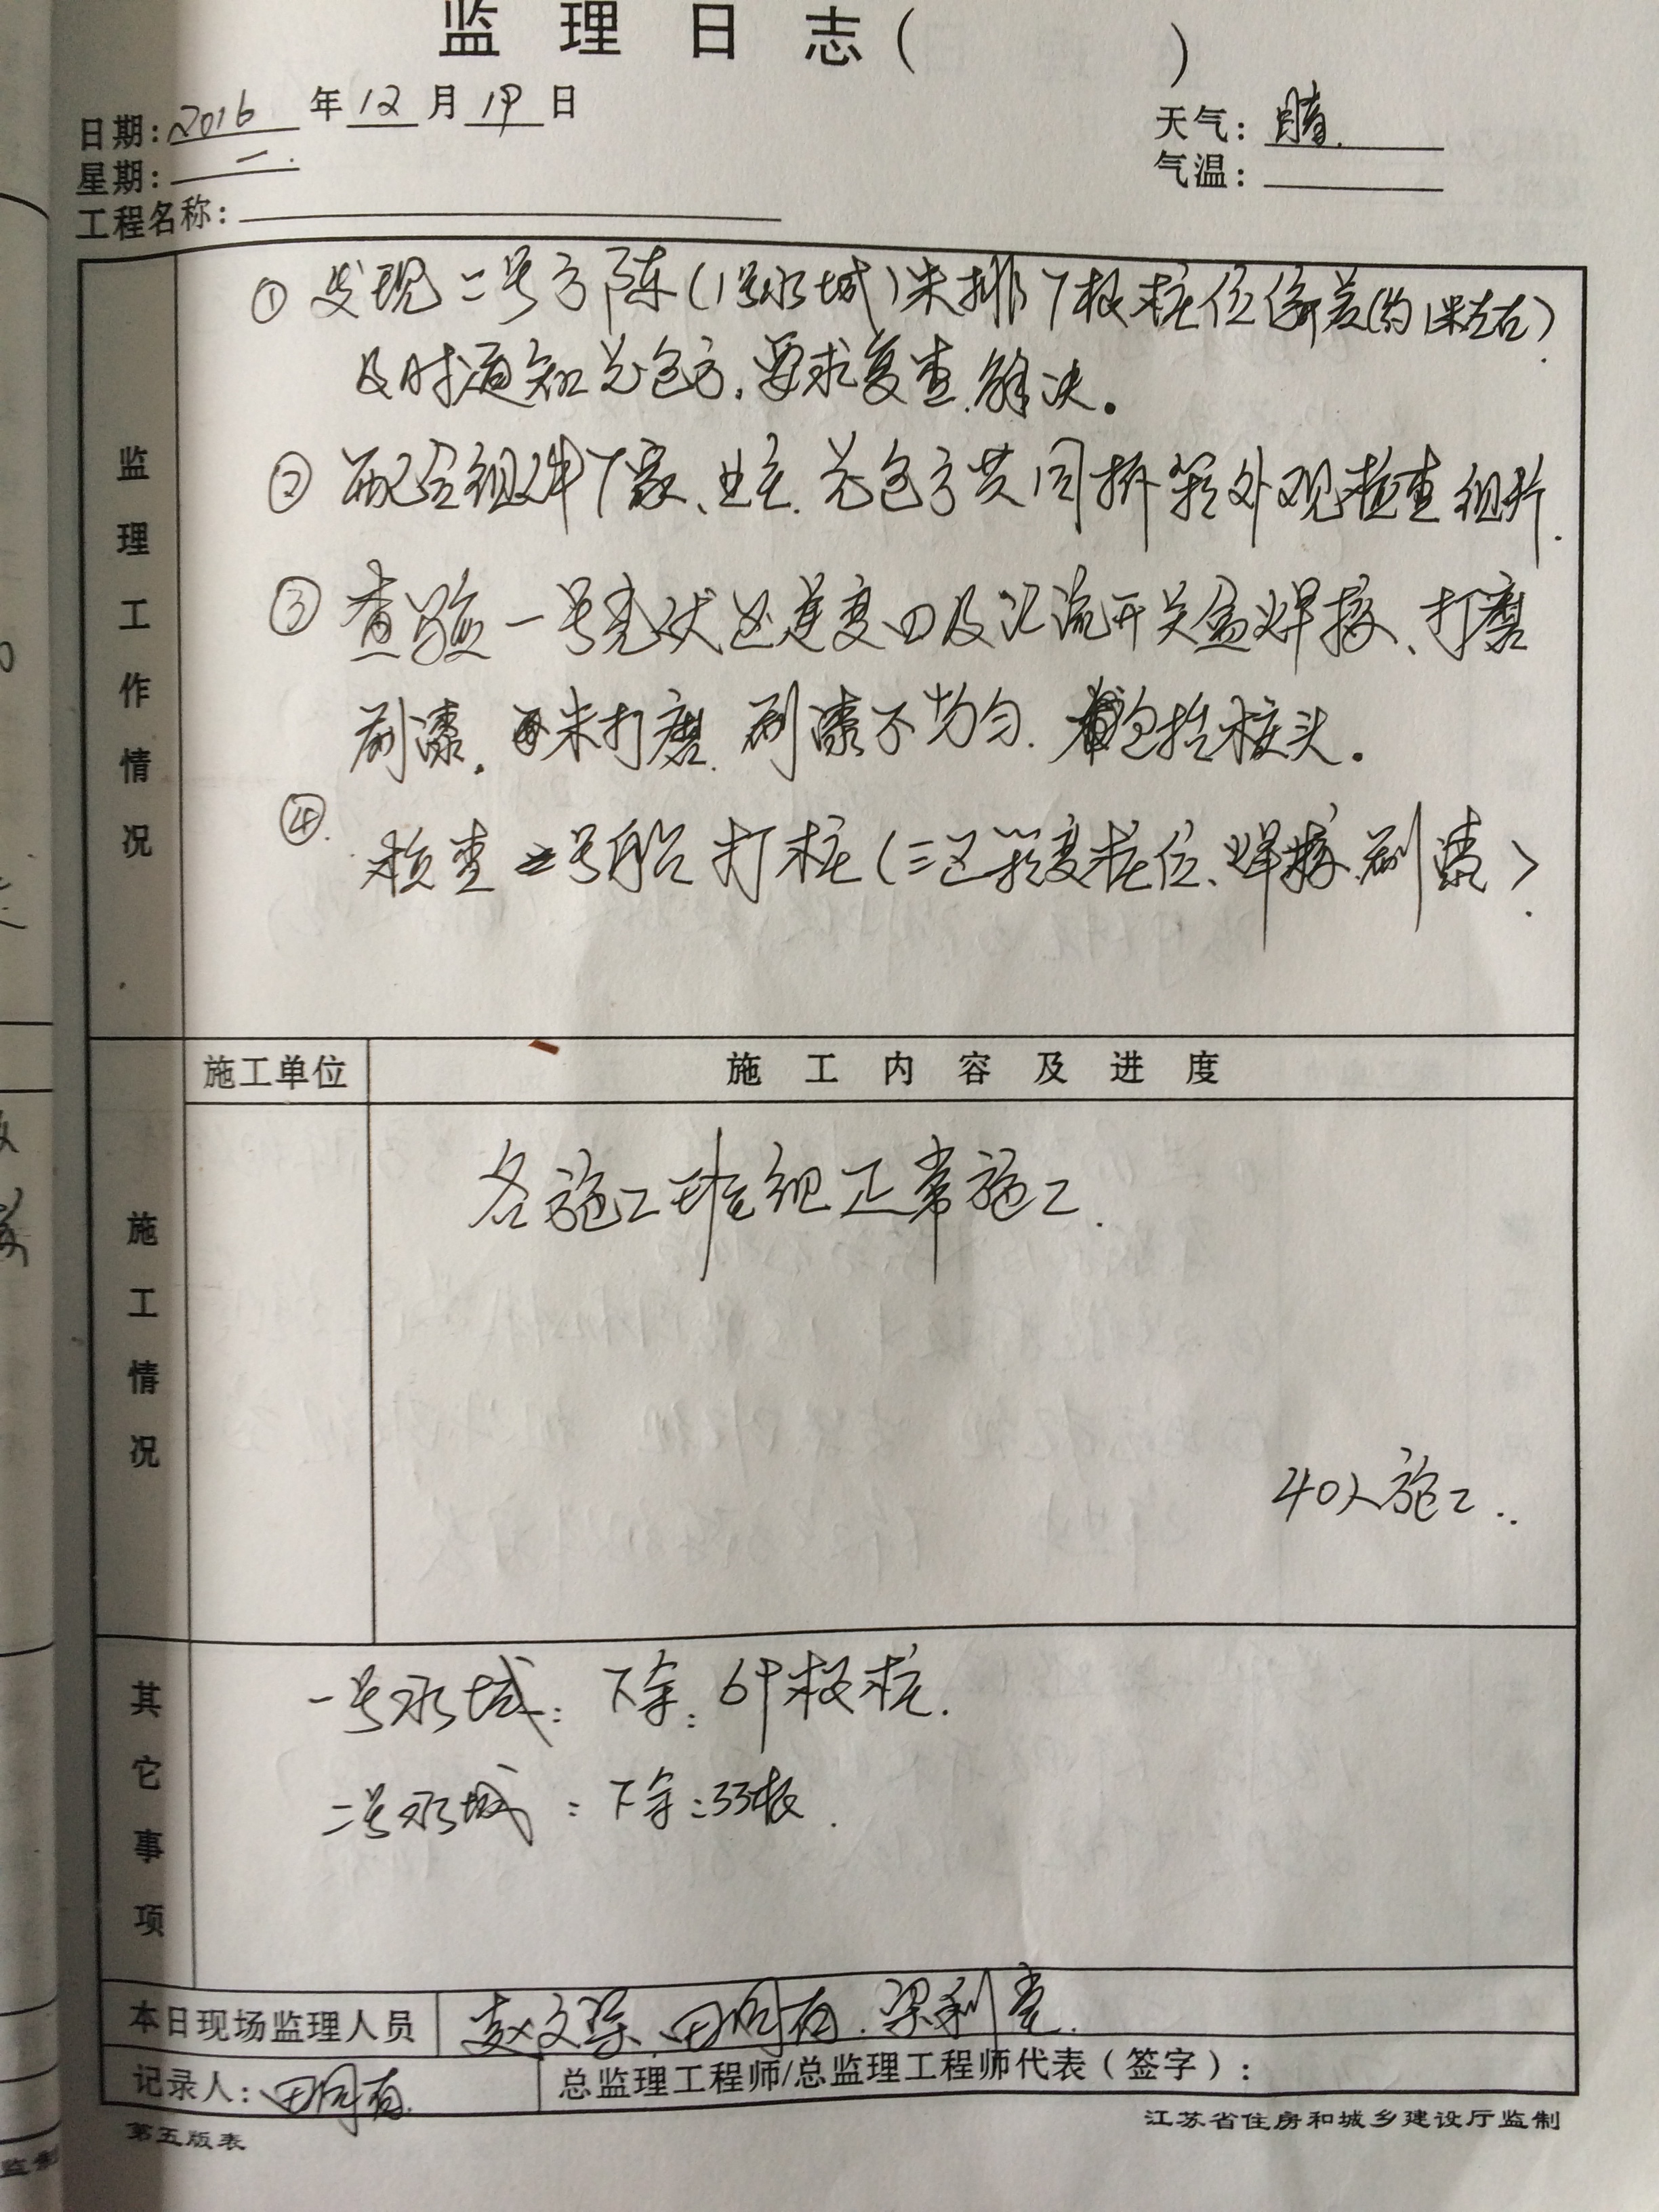 监理日志（ ）
日期：2016年12月19日
天气：晴.
星期：一.
气温：
工程名称：
监理工作情况
① 发现二号方陈(1号水域)未排7根桩位偏差(约1米左右)
及时通知总包方.要求复查.解决。
② 配合组件厂家、业主.总包方共同拆箱外观检查组件.
③ 查验一号 逆变 及汇流开关盒焊接、打磨
刷漆. 未打磨.刷漆不均匀. 包括桩头。
④. 核查二号船打桩(三区箱变桩位、焊接.刷漆)
施工单位
施工内容及进度
施工情况
各施工班组正常施工.
40人施工..
其它事项
一号水域：下余: 根桩.
二号水域：下余:33根.
本日现场监理人员
赵文 .田 有.梁利
记录人：田 有.
总监理工程师/总监理工程师代表（签字）：
第五版表
江苏省住房和城乡建设厅监制